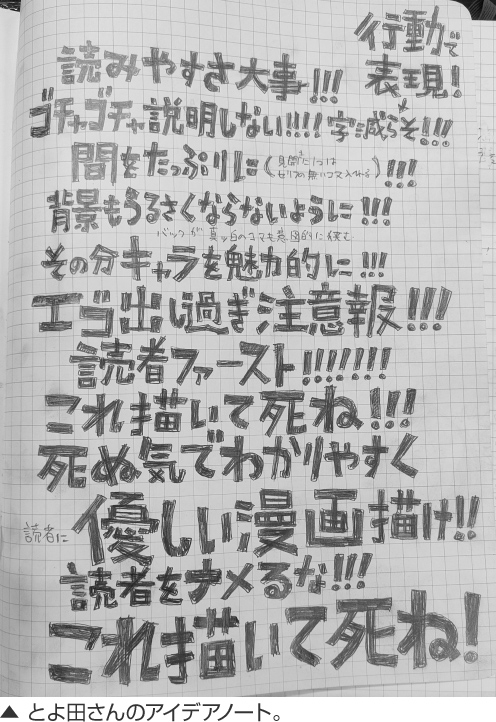 行動で
表現！
読みやすさ大事!!!
ゴチャゴチャ説明しない!!!! 字減らそ!!!
間をたっぷりに(見開きに1つは
セリフの無いコマ入れる)!!!
背景もうるさくならないように!!!
バックが真っ白のコマも意図的に挟む
その分キャラを魅力的に!!!
エゴ出し過ぎ注意報!!!
読者ファースト!!!!!!!
これ描いて死ね!!!
死ぬ気でわかりやすく
読者に 優しい漫画描け!!
読者をナメるな!!!
これ描いて死ね!
▲ とよ田さんのアイデアノート。